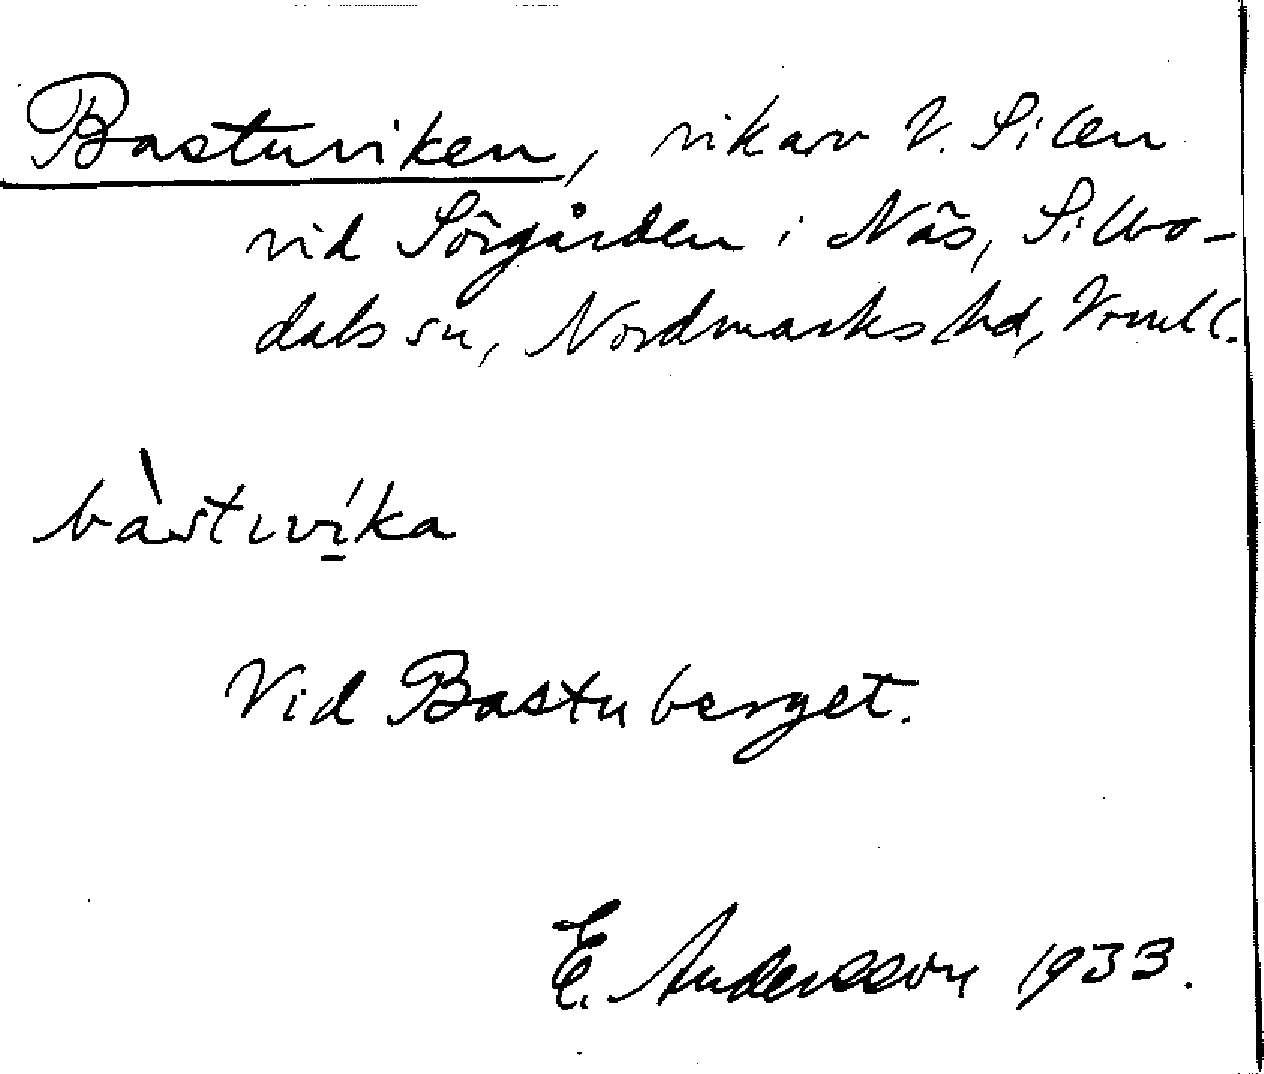 Bastuviken, vik av V. Silen
vid Sörgården i Näs, Silbo-
dals sn, Nordmarks hd, Vrml l.
bàstıvíka
Vid Bastuberget.
E. Andersson 1933.